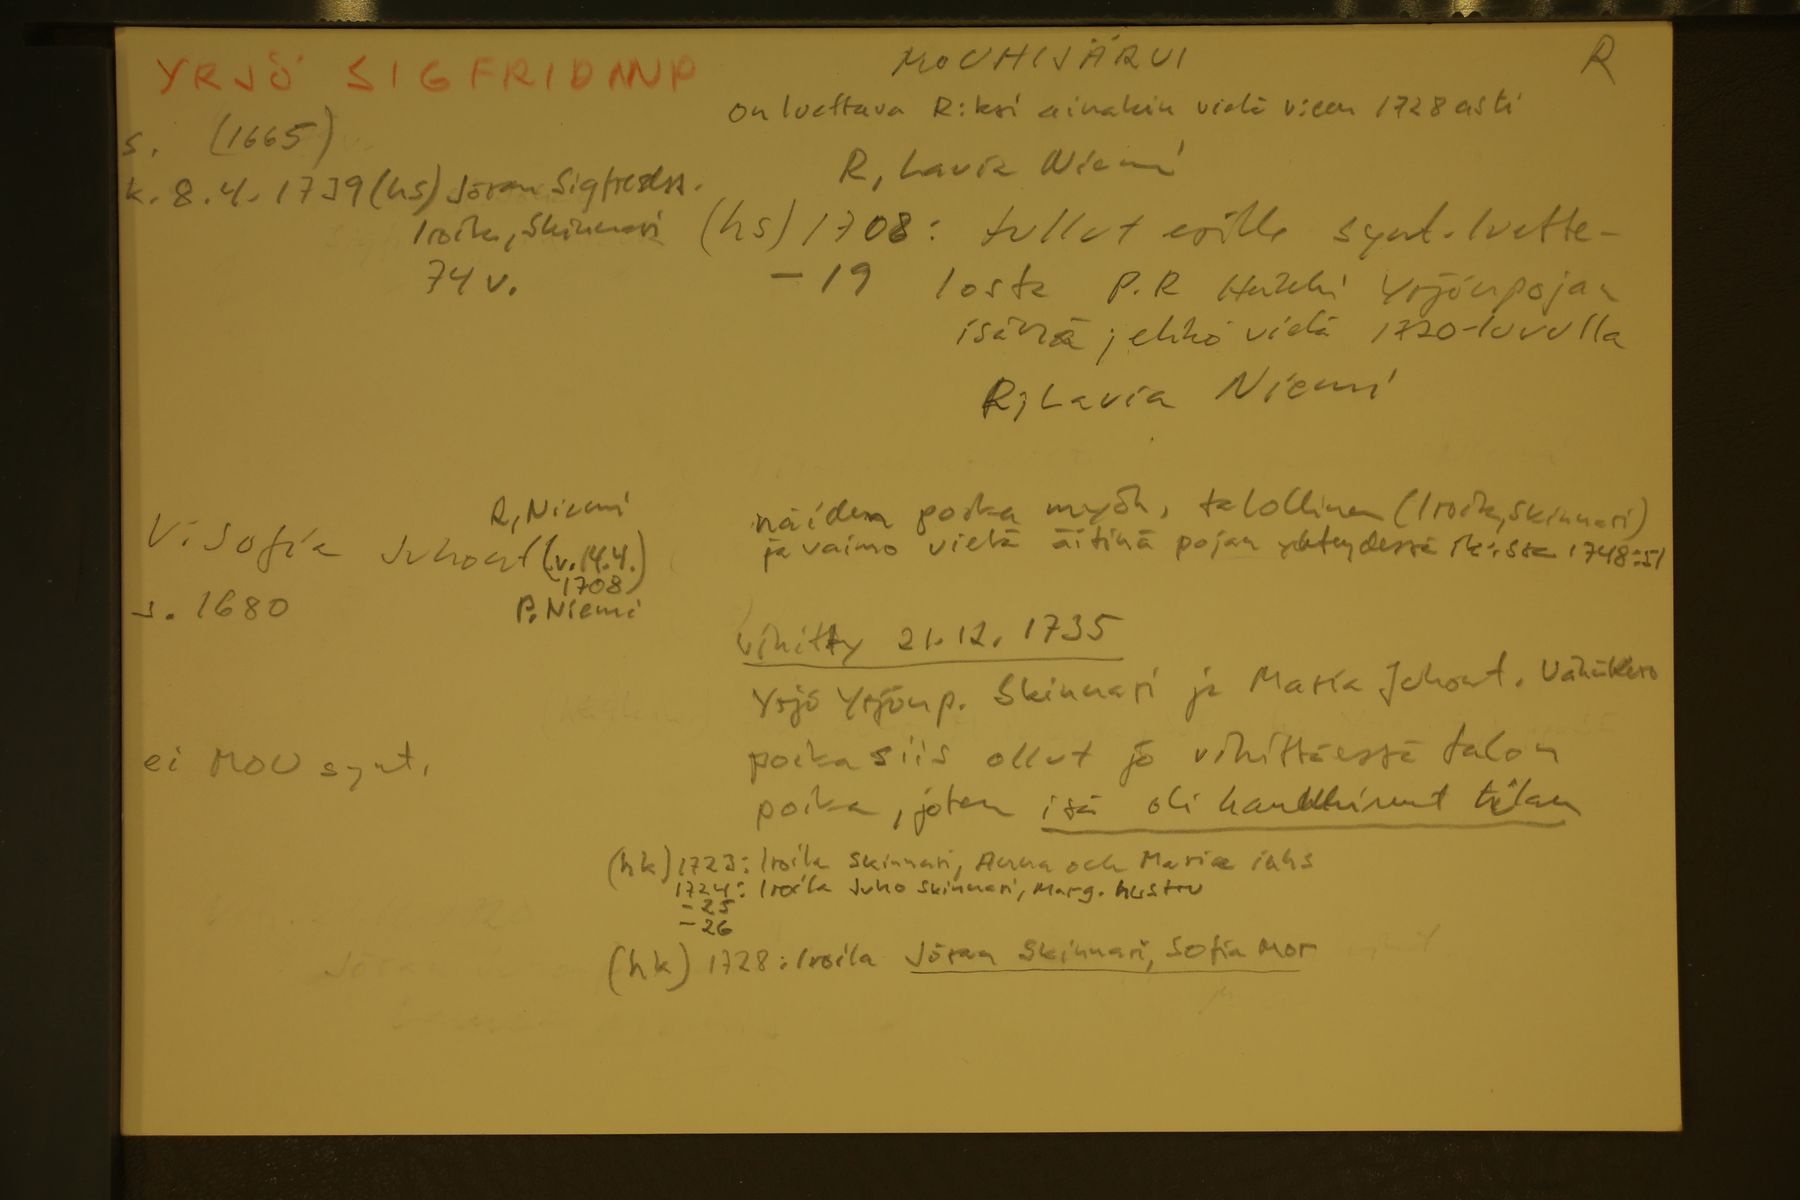 YRJÖ SIGFRIDINP
MOUHIJÄRVI
R
on luettava R:ksi ainakin vielä v:een 1728 asti
s. (1665)
R, Lavia Niemi
k. 8.4. 1739 (hs) Jöran Sigfredss.
Iroila, Skinnari
74 v.
(hs) 1708: tullut esille synt. luette-
- 19 losta P.R Heikki Yrjönpojan
isänä; ehkö vielä 1720-luvulla
R, Lavia Niemi
R, Niemi
V: Sofia Juhont (v. 14.4.
1708)
s. 1680
P. Niemi
näiden poika myöh. talollinen (Iroila, Skinnari)
ja vaimo vielä äitinä pojan yhteydessä rk:ssa 1748-51
vihitty 21.12. 1735
Yrjö Yrjönp. Skinnari ja Maria Juhont.
ei MOU synt.
poika siis ollut jo vihittäessä talon
poika, joten isä oli hankkinut tilan
(hk) 1723: Iroila Skinnari, Anna och Maria inhs
1724: Iroila Juho Skinnari, Marg. hustru
- 25
- 26
(hk) 1728: Iroila Jöran Skinnari, Sofia Mor